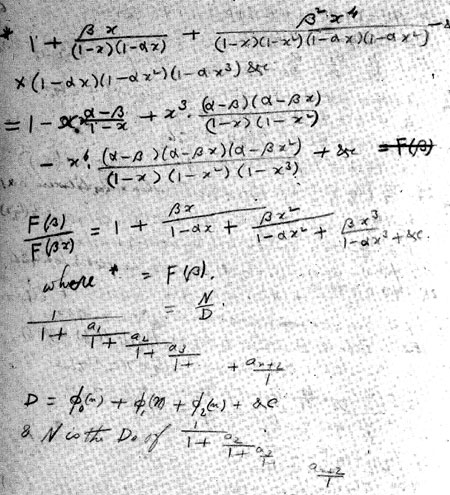 * 1 + βx/((1-x)(1-αx)) + β²x⁴/((1-x)(1-x²)(1-αx)(1-αx²)) + &
× (1-αx)(1-αx²)(1-αx³) &c
= 1 - x · (α-β)/(1-x) + x³ · (α-β)(α-βx)/((1-x)(1-x²))
- x⁶ · (α-β)(α-βx)(α-βx²)/((1-x)(1-x²)(1-x³)) + &c = F(β)
F(β)/F(βx) = 1 + βx/1-αx + βx²/1-αx² + βx³/1-αx³ + &c.
where * = F(β).
1/1+ a₁/1+ a₂/1+ a₃/1+ + aₙ₊₂/1 = N/D.
D = φ₀(n) + φ₁(n) + φ₂(n) + &c
& N is the D. of 1/1+ a₂/1+ a₃/1 aₙ₊₂/1